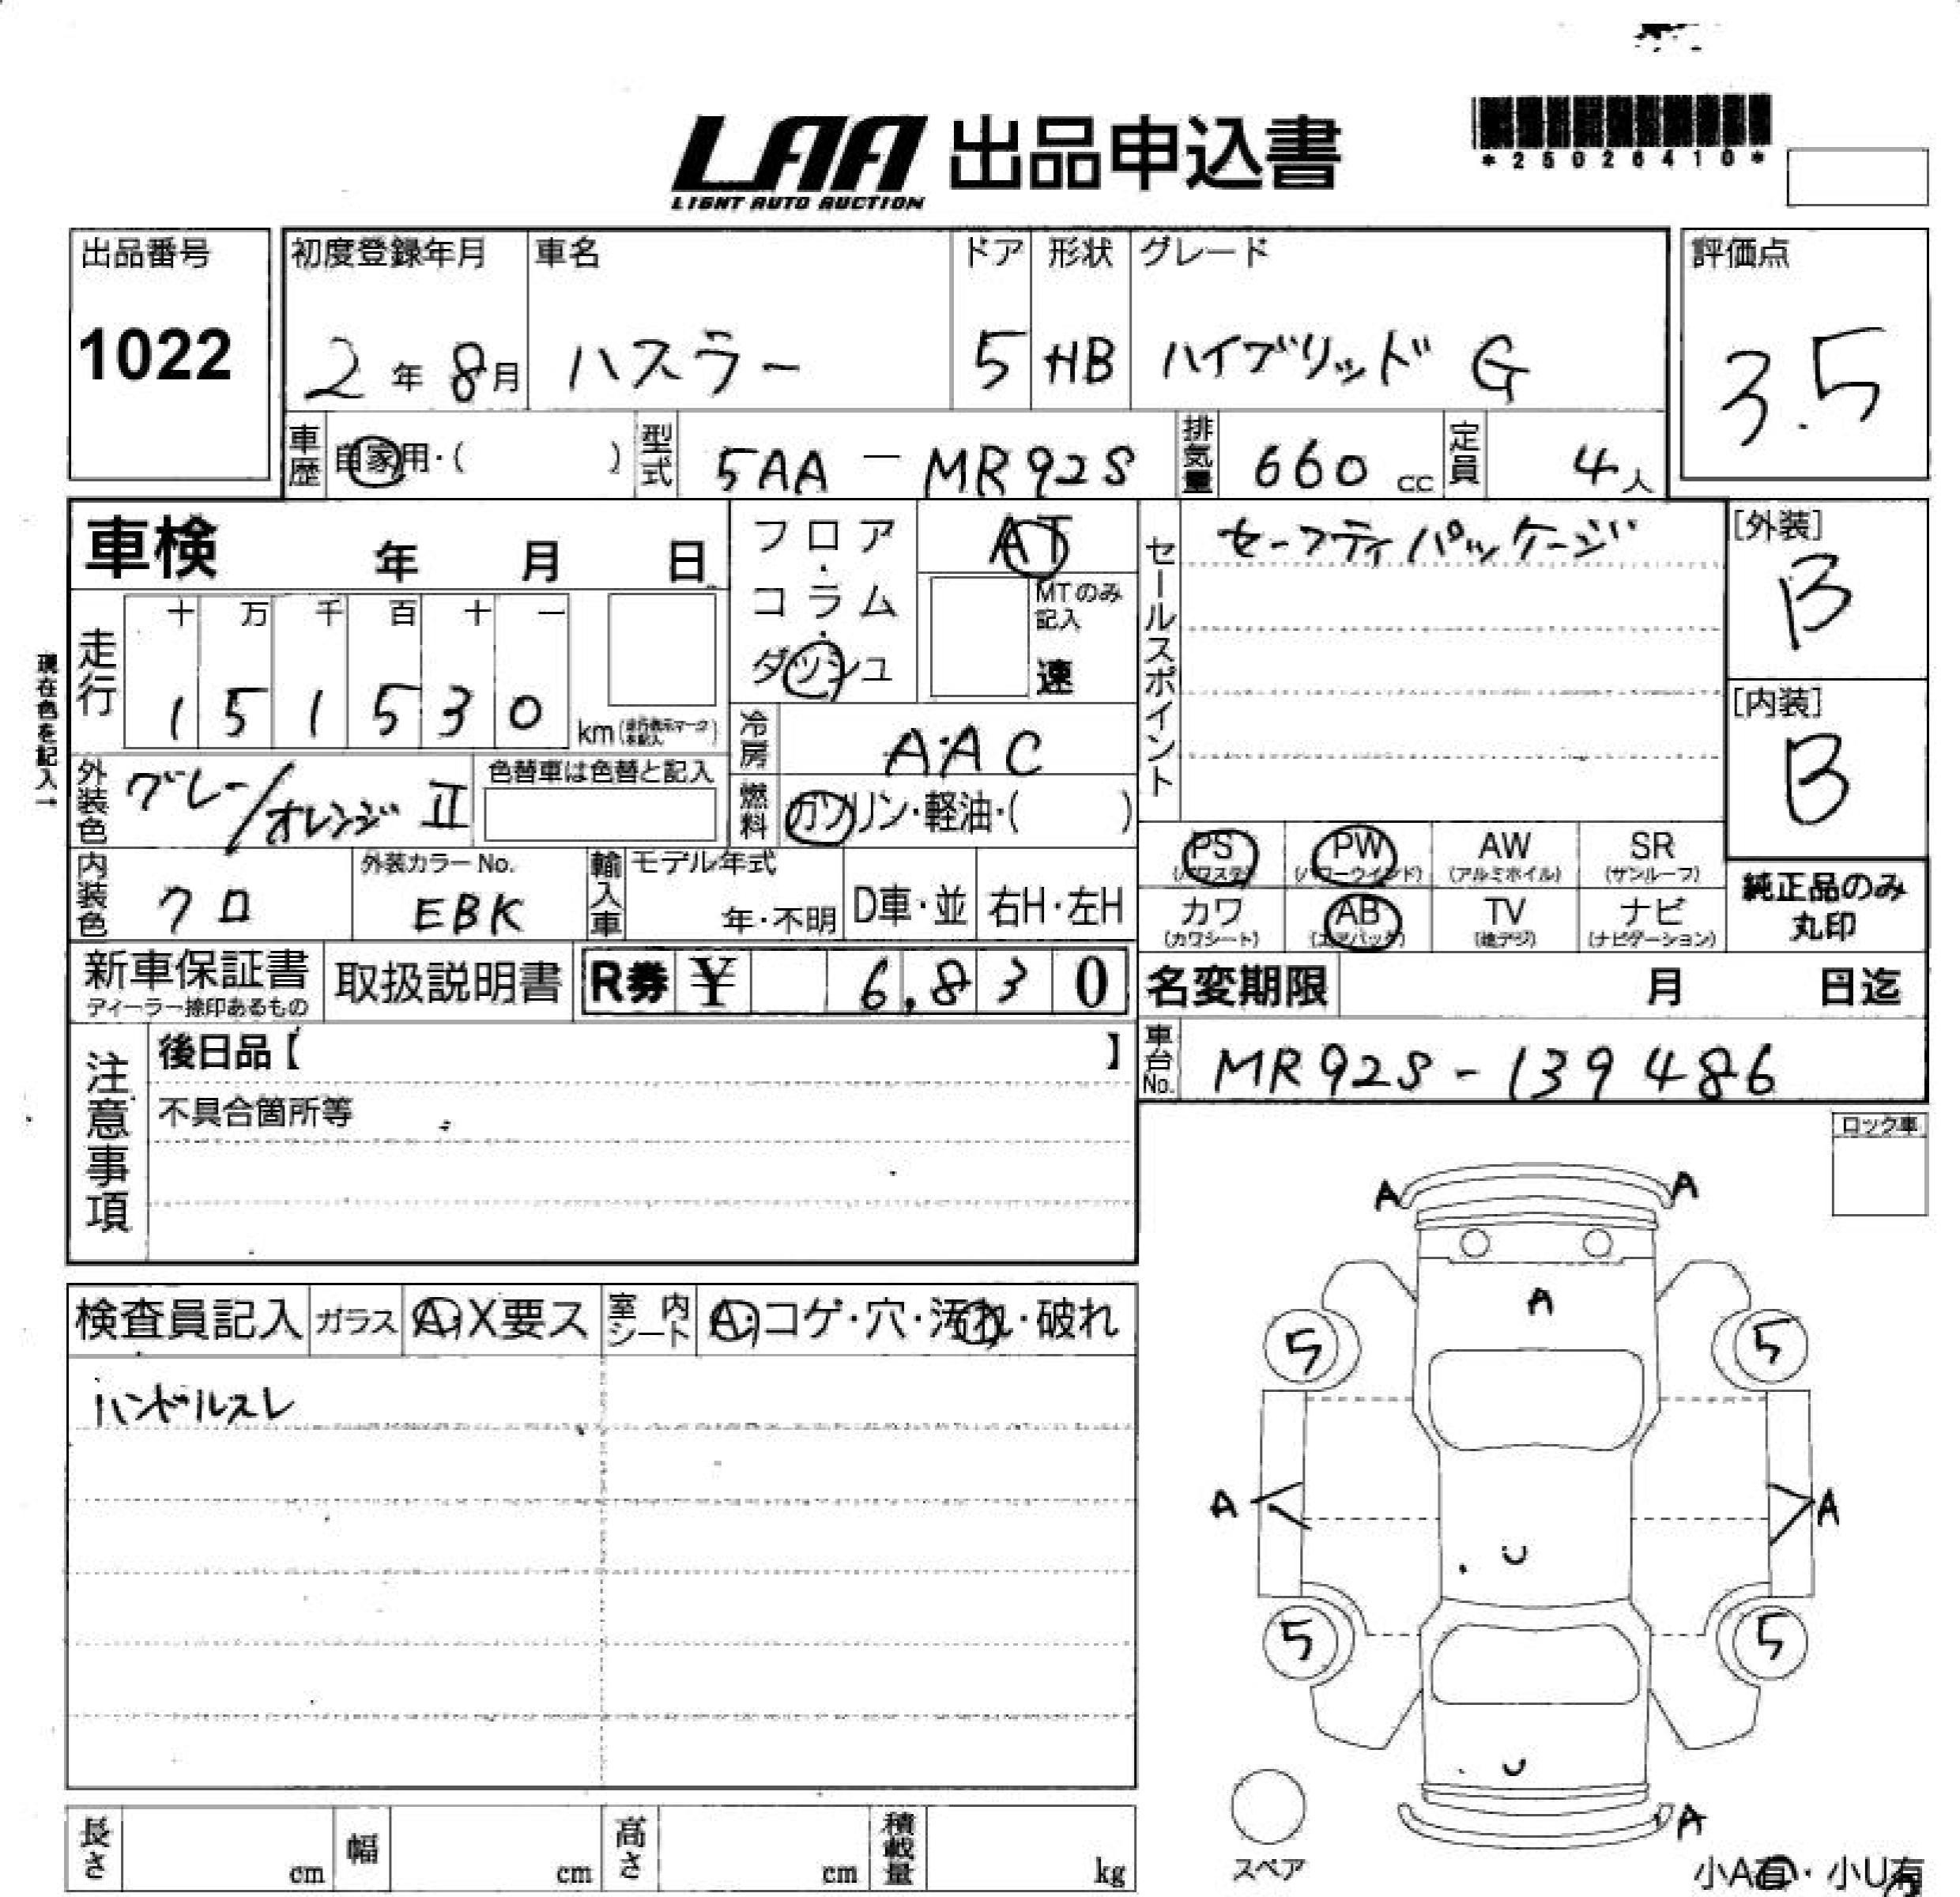 LAA 出品申込書
LIGHT AUTO AUCTION
*25026410*
出品番号
1022
初度登録年月 車名 ドア 形状 グレード
2年 8月 ハスラー 5 HB ハイブリッド G
評価点
3.5
車歴 自家用・( ) 型式 5AA-MR92S 排気量 660 cc 定員 4人
車検 年 月 日
フロア・コラム・ダッシュ
AT
MTのみ記入
速
セールスポイント
セーフティパッケージ
[外装]
B
[内装]
B
現在色を記入→
走行
十 万 千 百 十 一
1 5 1 5 3 0 km
冷房 A・AC
外装色 グレー/オレンジ II
色替車は色替と記入
燃料 ガソリン・軽油・( )
PS PW AW SR
(パワステ) (パワーウインド) (アルミホイル) (サンルーフ)
カワ AB TV ナビ
(カワシート) (エアバック) (地デジ) (ナビゲーション)
純正品のみ
丸印
内装色 クロ
外装カラーNo.
EBK
輸入車 モデル年式
年・不明 D車・並 右H・左H
新車保証書
ディーラー捺印あるもの
取扱説明書
R券 ¥ 6,830
名変期限 月 日迄
車台No. MR92S-139486
注意事項
後日品【 】
不具合箇所等
ロック車
検査員記入 ガラス A・X要ス 室内シート A・コゲ・穴・汚れ・破れ
ハンドルスレ
A A
A
5 5
A A
U
5 5
U
A
スペア
小A有・小U有
長さ cm 幅 cm 高さ cm 積載量 kg